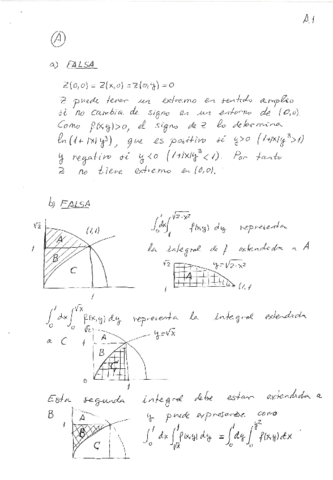 A.1
A
a) FALSA
Z(0,0) = Z(x,0) = Z(0,y) = 0
Z puede tener un extremo en sentido amplio
si no cambia de signo en un entorno de (0,0).
Como f(x,y)>0, el signo de Z lo determina
ln(1+|x|y³), que es positivo si y>0 (1+|x|y³>1)
y negativo si y<0 (1+|x|y³<1). Por tanto
Z no tiene extremo en (0,0).
b) FALSA
√2 A (1,1)
1 B C
1
∫₀¹dx∫₁^√(2-x²) f(x,y) dy representa
la integral de f extendida a A
√2 y=√(2-x²)
1 A (1,1)
∫₀¹dx∫₀^√x f(x,y) dy representa la integral extendida
a C
√2 A y=√x
1 B C
0 1
Esta segunda integral debe estar extendida a
B y puede expresarse como
1 A B C
∫₀¹dx∫_√x^1 f(x,y) dy = ∫₀¹dy∫₀^y² f(x,y) dx